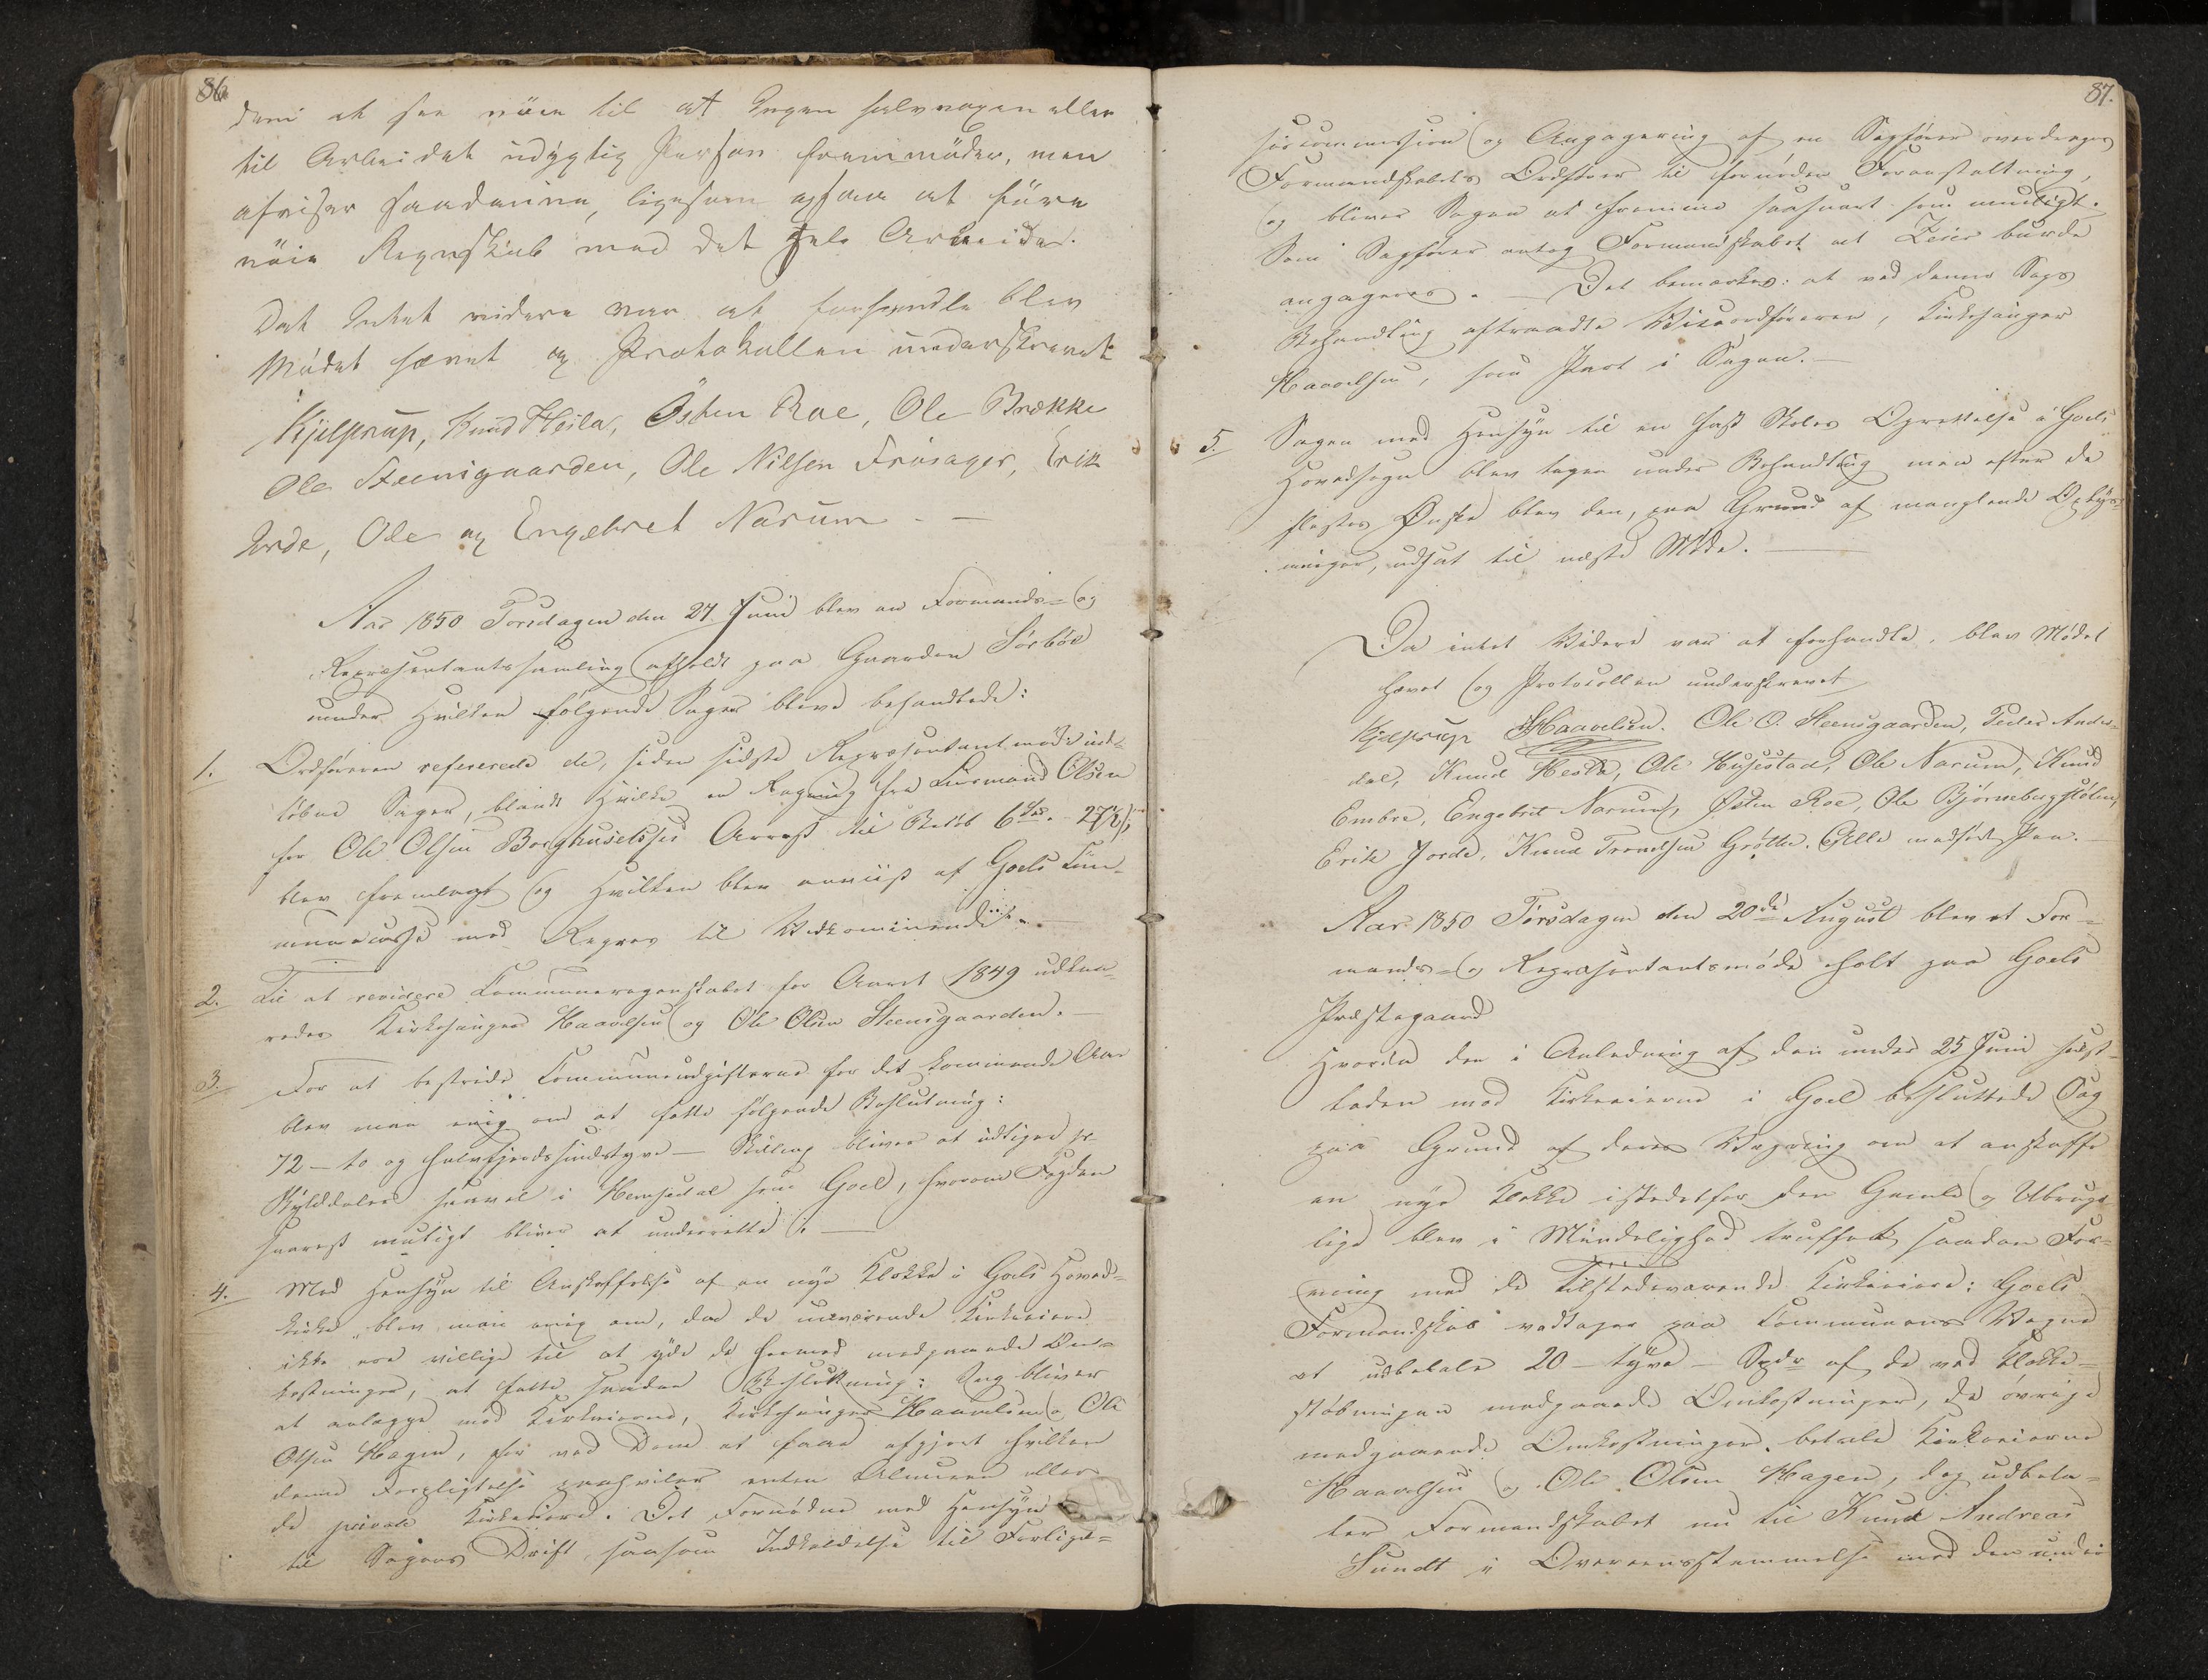 86.
dem at see nöie til at Ingen halvvoxen eller
til Arbeidet udygtig Person fremmöder, men
afviser saadanne, ligesom ogsaa at före
nöie Regnskab med det hele Arbeide.
Dat Intet videre var at forhandle blev
Mödet hævet og Protokollen underskrevet
Kjelstrup, Knud Hesla, Østen Roe, Ole Brække
Ole Steensgaarden, Ole Nilsen Frøsager, Erik
Jorde, Ole og Engebret Narum. —
Aar 1850 Torsdagen den 27 Juni blev en Formands- og
Repræsentantssamling afholdt paa Gaarden Sørbøe
under Hvilken følgende Sager bleve behandlede:
1. Ordføreren refererede de, siden sidste Repræsentantmøde ind-
løbne Sager, blandt Hvilke en Regning fra Lensmand Olsen
for Ole Olsen Borghuseteies Arrest til Beløb 6 27½
blev fremlagt og Hvilken blev anviist af Goels Com-
munecasse med Regres til Vedkommende.
2. Til at revidere Communeregnskabet for Aaret 1849 udkaa-
redes Kirkesanger Haavelsen og Ole Olsen Steensgaarden. —
3. For at bestride Communeudgifterne for det kommende Aar
blev man enig om at fatte følgende Beslutning:
72 – to og halvfjerdsindstyve – Skilling bliver at udligne pr
Skylddaler saavel i Hemsedal som Goel, hvorom Fogden
snarest muligt bliver at underrette. —
4. Med Hensyn til Anskaffelse af en nye Klokke i Goels Hoved-
kirke, blev man enig om, da de nuværende Kirkeeiere
ikke ere villige til at yde de hermed medgaaende Om-
kostninger, at fatte saadan Beslutning: Sag bliver
at anlægge mod Kirkeeierne, Kirkesanger Haavelsen og Ole
Olsen Hagen, for ved Dom at faae afgjort hvilken
denne Forpligtelse paahviler enten Almuen eller
de private Kirkeeiere. Det Fornødne med Hensyn
til Sagens Drift, saasom Indkaldelse til Forligel-
87.
sescommission og Engagering af en Sagfører overdrages
Formandskabets Ordfører til fornøden Foranstaltning,
og bliver Sagen at fremme saasnart som muligt.
Som Sagfører antog Formandskabet at Zeier burde
engageres. — Det bemærkes: at ved denne Sags
Behandling aftraadte Viceordføreren, Kirkesanger
Haavelsen, som Part i Sagen. —
5. Sagen med Hensyn til en fast Skoles Oprettelse i Goels
Hovedsogn blev tagen under Behandling men efter de
flestes Ønske blev den, paa Grund af manglende Oplys-
ninger, udsat til næste Møde. —
Da intet Videre var at forhandle, blev Mødet
hævet og Protocollen underskrevet
Kjelstrup Haavelsen. Ole O. Steensgaarden, Peder Anders-
dal, Knud Hesla, Ole Husestad, Ole Narum, Knud
Embre, Engebret Narum, Østen Roe, Ole Bjørnebergstølen,
Erik Jorde, Knud Trondsen Grøtte. Alle medført Pen. —
Aar 1850 Torsdagen den 20de August blev et For-
mands- og Repræsentantsmøde holt paa Goels
Præstegaard
Hvorda den i Anledning af den under 25 Juni sidst-
leden mod Kirkeeierne i Goel besluttede Sag
paa Grund af deres Vægring om at anskaffe
en nye Klokke istedetfor den Gamle og Ubruge-
lige blev i Mindelighed truffet saadan For-
ening med de Tilstedeværende Kirkeeiere: Goels
Formandskab vedtager paa Communens Vegne
at udbetale 20 – tyve – Spdr af de ved Klokke-
støbningen medgaaede Omkostninger, de øvrige
medgaaende Omkostninger, betale Kirkeeierne
Haavelsen og Ole Olsen Hagen, dog udbeta-
ler Formandskabet nu til Knud Andreas
Sundt i Overeensstemmelse med den under